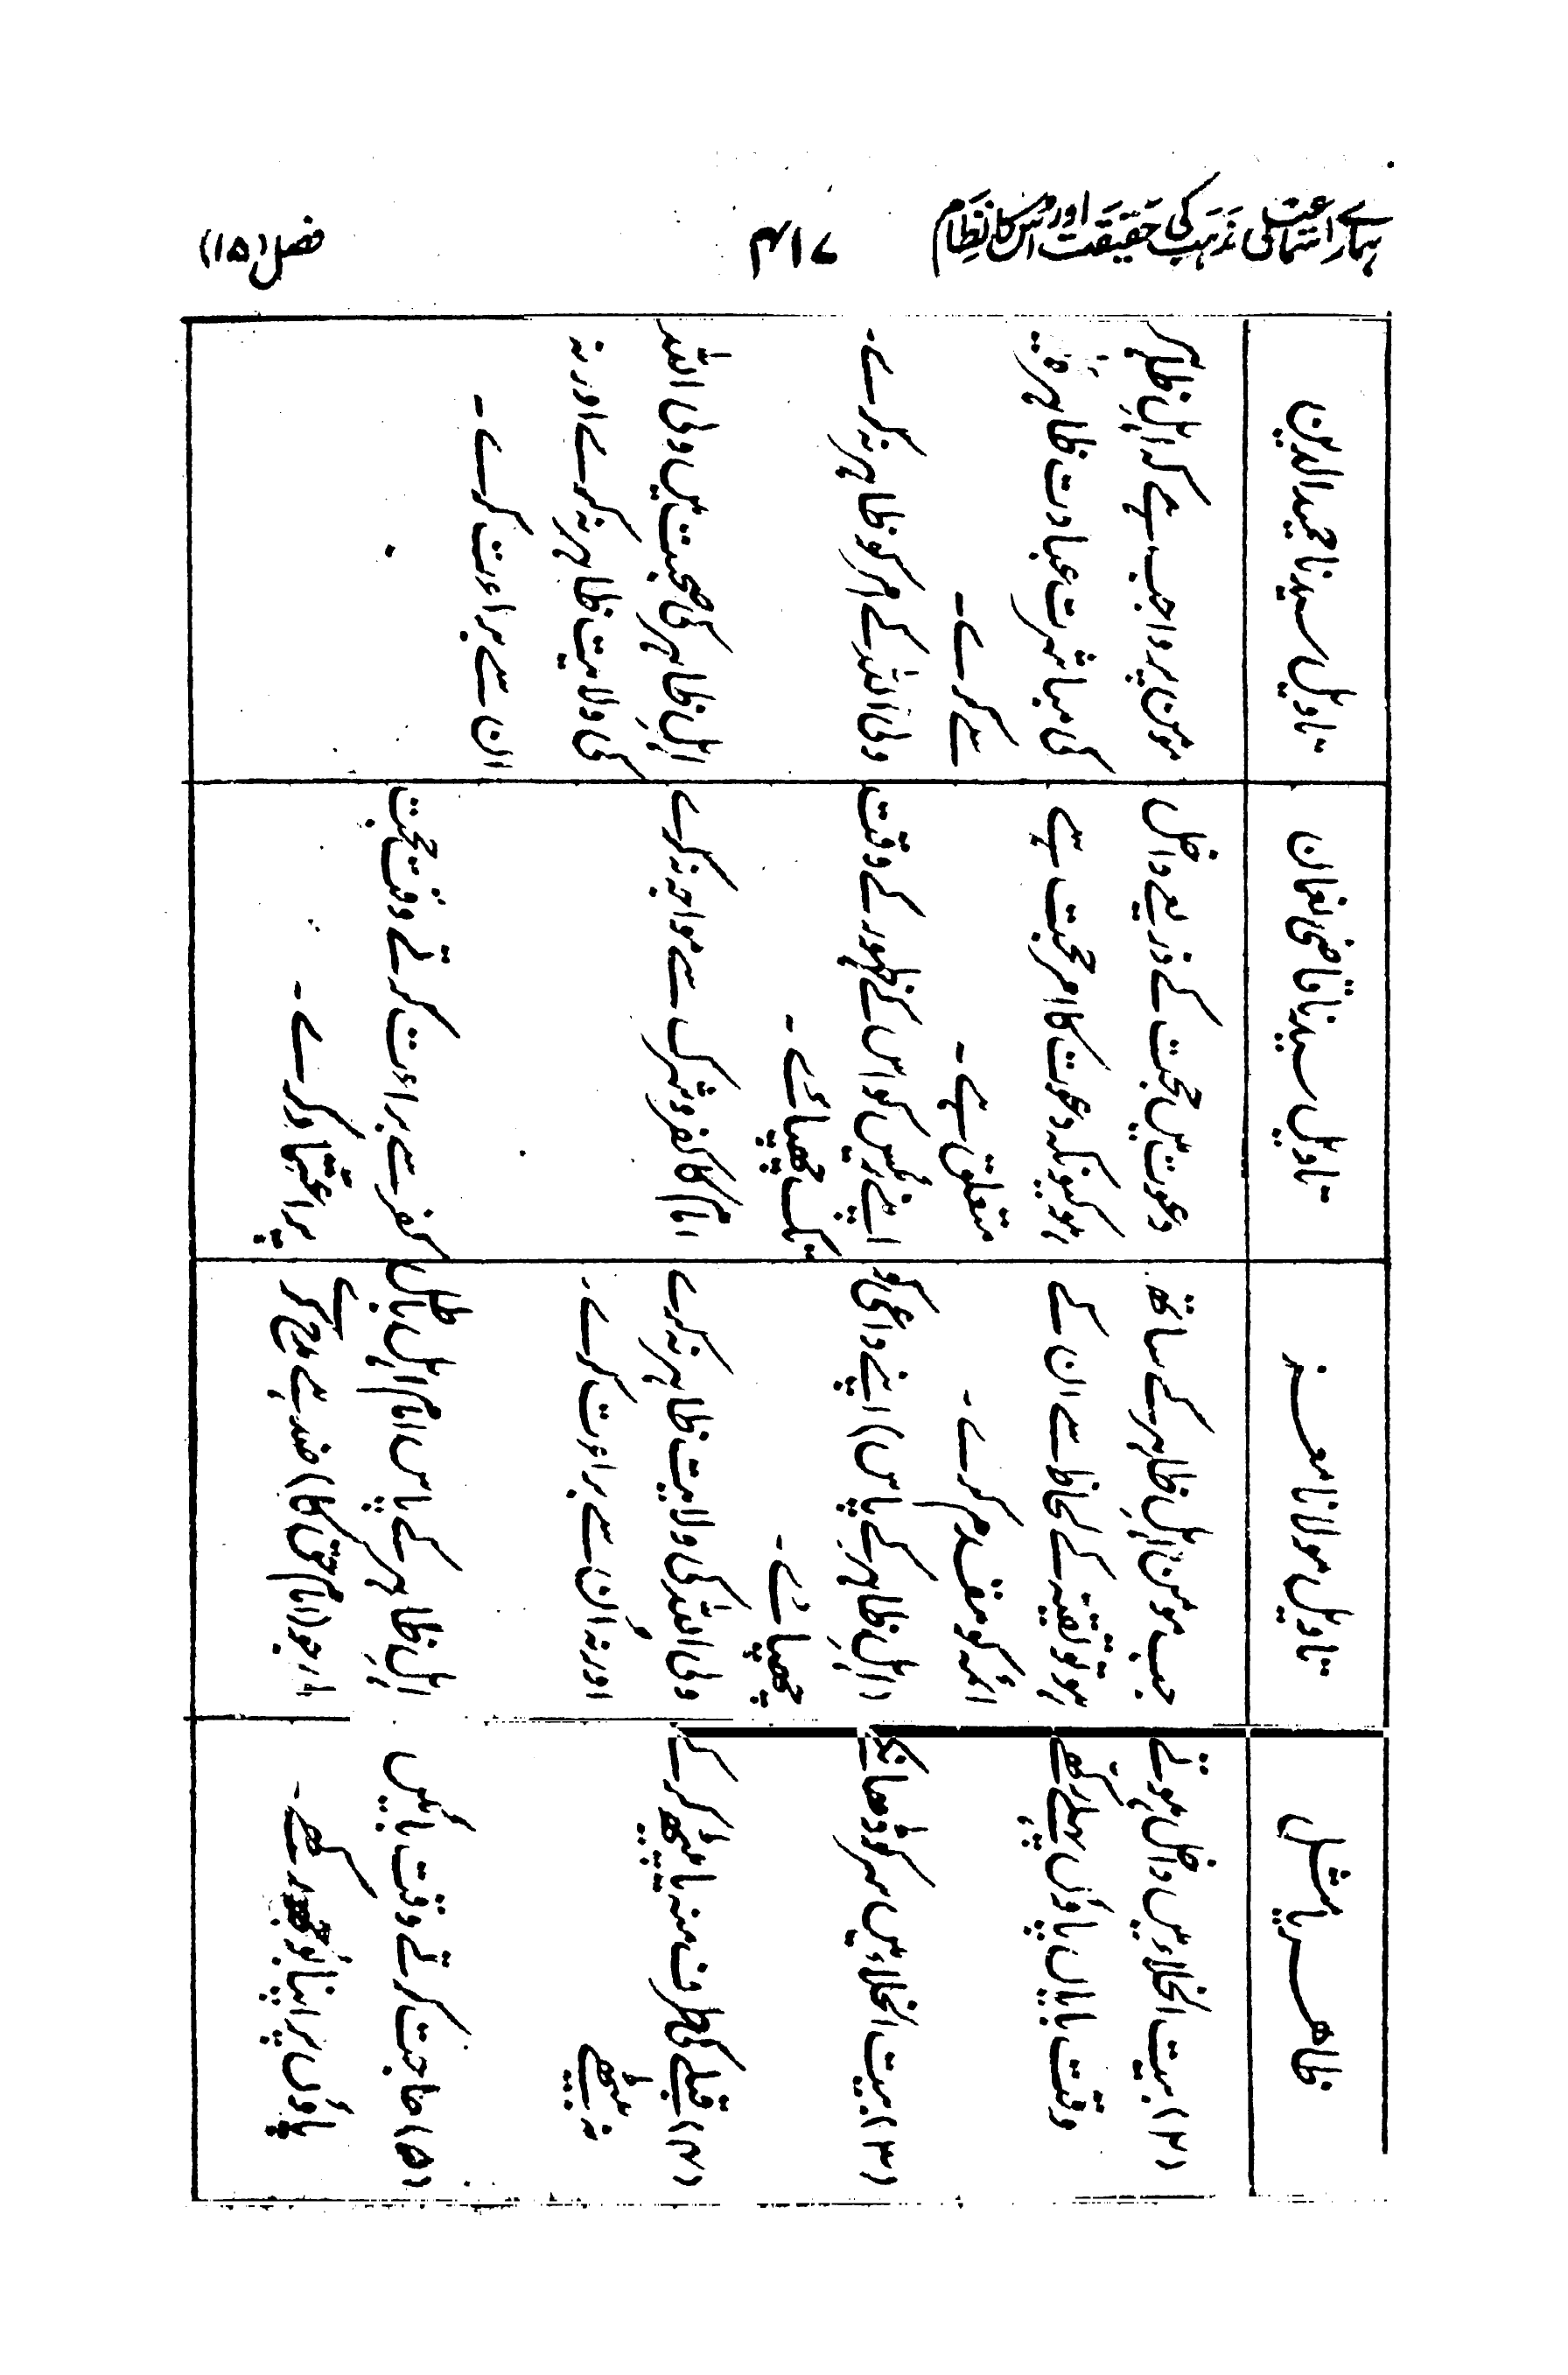 ہمارے اسماعیلی مذہب کی حقیقت اور اس کا نظام
۴۱۷
فصل (۱۵)
ظاہر یا مثل
تاویل مولانا معز
تاویل سیدنا قاضی نعمان
تاویل سیدنا حمید الدین
(۲) بیت الخلاء میں داخل ہوتے
وقت بایاں پاؤں پہلے رکھے
جب مومن اہلِ ظاہر کے ساتھ
ہو تو تقیہ کے لحاظ سے ان کے
ائمہ کو مقدم کرے۔
دعوت میں حجت کے ذریعے داخل
ہو کیونکہ دعوت کا امر حجت سے
متعلق ہے۔
مومن پر واجب ہے کہ اہلِ ظاہر
کی مباشرت عبادت ظاہریہ
سے کرے۔
(۳) بیت الخلاء میں سر کو ڈھانکے
(اہلِ ظاہر کے پاس) اپنے داعی کو
چھپائے۔
اپنے رئیس کو اس کے ظہور کے وقت
تک چھپائے۔
ولی اللہ کے امر کو ظاہر نہ کرے۔
(۴) قبلے کی طرف منہ یا پیٹھ کر کے
نہ بیٹھے
ولی اللہ کی ولایت ظاہر نہ کرے
اور نہ اُن سے براءت کرے۔
امام کا کفر و شرک سے مواجہ نہ کرے
اہلِ ظاہر کی صحبت میں ولی اللہ
کی ولایت ظاہر نہ کرے اور نہ
ان سے براءت کرے۔
(۵) حاجت کرتے وقت بائیں
پاؤں پر اپنا بوجھ رکھے۔
اہلِ ظاہر کے پاس امام اہلِ باطل
جو (امام حق کا) ضد ہے مدح کرے
کفر سے براءت کرتے وقت حجت
پر اعتماد کرے۔